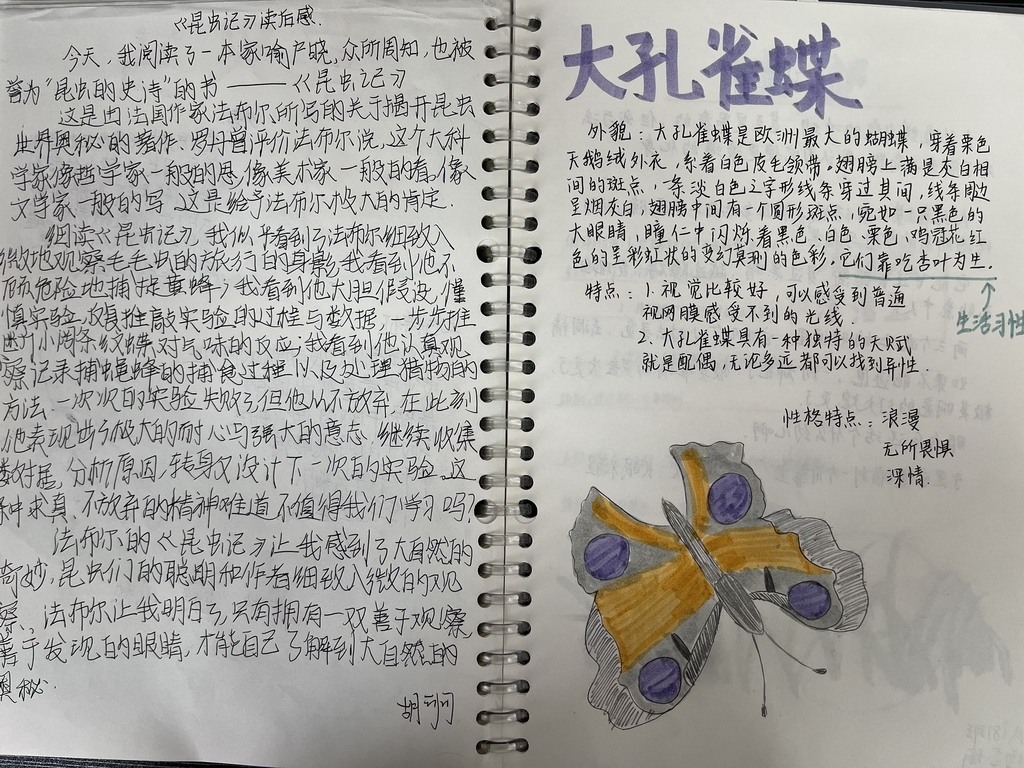 《昆虫记》读后感.
今天,我阅读了一本家喻户晓,众所周知,也被
誉为"昆虫的史诗"的书——《昆虫记》
这是由法国作家法布尔所写的关于揭开昆虫
世界奥秘的著作.罗丹曾评价法布尔说,这个大科
学家像哲学家一般的思,像美术家一般的看,像
文学家一般的写.这是给予法布尔极大的肯定.
细读《昆虫记》,我似乎看到了法布尔细致入
微地观察毛毛虫的旅行的身影;我看到他不
顾危险地捕捉黄蜂;我看到他大胆假设,谨
慎实验,反复推敲实验的过程与数据,一步步推
断小阔条纹蝶对气味的反应;我看到他认真观
察记录捕蝇蜂的捕食过程以及处理猎物的
方法.一次次的实验失败了但他从不放弃,在此刻
他表现出了极大的耐心与强大的意志.继续收集
数据,分析原因,转身又设计下一次的实验.这
种求真,不放弃的精神难道不值得我们学习吗?
法布尔的《昆虫记》让我感到了大自然的
奇妙,昆虫们的聪明和作者细致入微的观
察.法布尔让我明白了,只有拥有一双善于观察
善于发现的眼睛,才能自己了解到大自然的
奥秘.
胡
大孔雀蝶
外貌:大孔雀蝶是欧洲最大的蝴蝶,穿着栗色
天鹅绒外衣,系着白色皮毛领带。翅膀上满是灰白相
间的斑点,一条淡白色之字形线条穿过其间,线条周边
呈烟灰白,翅膀中间有一个圆形斑点,宛如一只黑色的
大眼睛,瞳仁中闪烁着黑色、白色、栗色、鸡冠花红
色的呈彩虹状的变幻莫测的色彩.它们靠吃杏叶为生.
生活习性
特点:1.视觉比较好,可以感受到普通
视网膜感受不到的光线.
2.大孔雀蝶具有一种独特的天赋
就是配偶,无论多远都可以找到异性.
性格特点:浪漫
无所畏惧
深情.